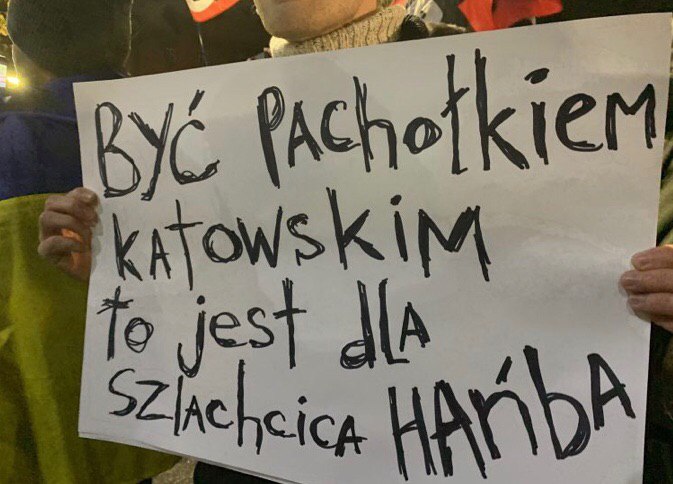 BYĆ PAChOłkiEM
KATOWSKiM
to jest dLA
SZlAchcicA HAńbA